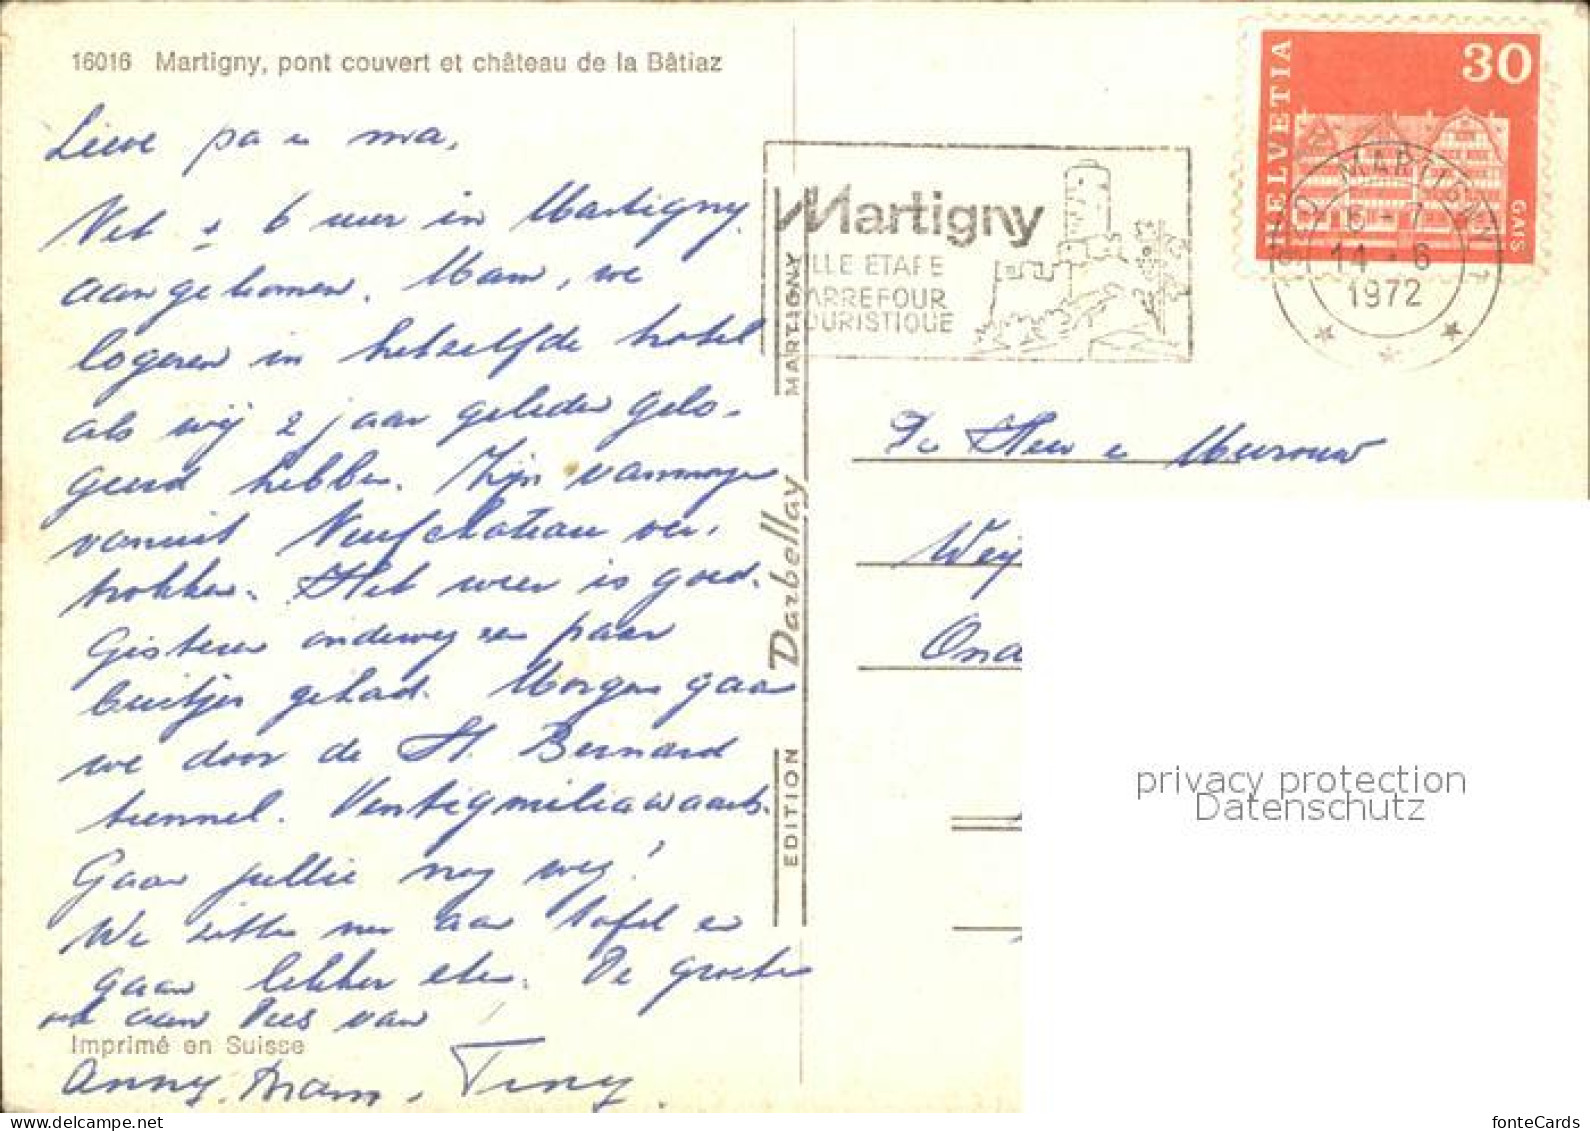 16016 Martigny, pont couvert et château de la Bâtiaz
Lieve pa en ma,
Net ± 6 uur in Martigny
aangekomen. Mam, we
logeren in hetzelfde hotel
als wij 2 jaar geleden gelo-
geerd hebben. Zijn vanmorgen
vanuit Neufchateau ver-
trokken. Het weer is goed.
Gisteren onderweg een paar
buitjes gehad. Morgen gaan
we door de St. Bernard
tunnel. Ventigmiliawaarts.
Gaan jullie nog weg!
We zitten nu aan tafel en
gaan lekker eten. De groeten
ook aan Pees van
Imprimé en Suisse
Anny, Mam, Tiny.
EDITION Darbellay MARTIGNY
Martigny
VILLE ETAPE
CARREFOUR
TOURISTIQUE
HELVETIA
30
GAIS
MARTIGNY 1
14-6
1972
De Heer en Mevrouw
Weij
Ond
privacy protection
Datenschutz
www.delcampe.net
fonteCards